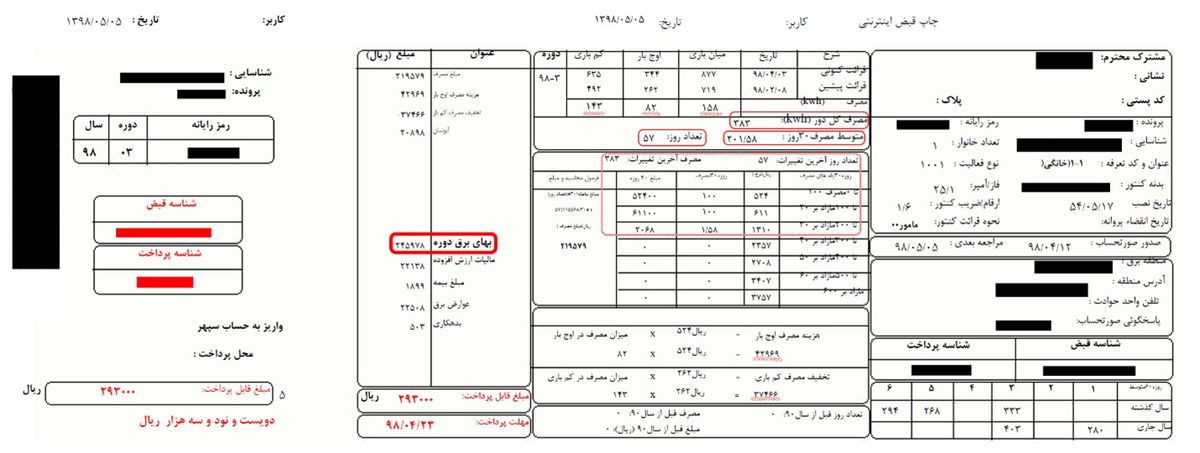 چاپ قبض اینترنتی
کاربر:
تاریخ: ۱۳۹۸/۰۵/۰۵
مشترک محترم:
نشانی :
کد پستی :
پلاک :
پرونده :
رمز رایانه :
شناسایی :
تعداد خانوار : ۱
عنوان و کد تعرفه : ۱-۱(خانگی(
نوع فعالیت : ۱۰۰۱
بدنه کنتور :
فاز/آمپر: ۲۵/۱
تاریخ نصب ۵۴/۰۵/۱۷
ارقام/ضریب کنتور : ۱/۶
تاریخ انقضاء پروانه:
نحوه قرائت کنتور: مامور۰۰
صدور صورتحساب : ۹۸/۰۴/۱۲
مراجعه بعدی : ۹۸/۰۵/۰۵
منطقه برق :
آدرس منطقه :
تلفن واحد حوادث :
پاسخگوئی صورتحساب:
شناسه قبض
شناسه پرداخت
۱ ۲ ۳ ۴ ۵ ۶
سال گذشته ۳۳۳ ۲۶۸ ۲۹۴
سال جاری ۲۸۰ ۴۰۳
شرح تاریخ میان باری اوج بار کم باری دوره
قرائت کنونی ۹۸/۰۴/۰۳ ۸۷۷ ۳۴۴ ۶۳۵ ۹۸-۳
قرائت پیشین ۹۸/۰۲/۰۸ ۷۱۹ ۲۶۲ ۴۹۲
مصرف (kwh) ۱۵۸ ۸۲ ۱۴۳
مصرف کل دور (kwh): ۳۸۳
متوسط مصرف ۳۰روز : ۲۰۱/۵۸
تعداد روز: ۵۷
تعداد روز آخرین تغییرات: ۵۷
مصرف آخرین تغییرات: ۳۸۳
مبلغ ۳۰ روزه
فرمول محاسبه و مبلغ
تا ۱۰۰مصرف ۰ ۵۲۴ ۱۰۰ ۵۲۴۰۰
۶۱۱ ۱۰۰ ۶۱۱۰۰
۱۳۱۰ ۱/۵۸ ۲۰۶۸
۲۳۵۷ ۰ ۰
۲۷۰۸ ۰ ۰
۳۴۰۷ ۰ ۰
مازاد بر ۶۰۰ ۳۷۵۷ ۰ ۰
۲۱۹۵۷۹
هزینه مصرف در اوج بار = ۵۲۴ریال x میزان مصرف در اوج بار
۴۲۹۶۹ = ۵۲۴ریال x ۸۲
تخفیف مصرف در کم باری = ۲۶۲ریال x میزان مصرف در کم باری
۳۷۴۶۶ = ۲۶۲ریال x ۱۴۳
تعداد روز قبل از سال۹۰: ۰
مصرف قبل از سال۹۰: ۰
مبلغ قبل از سال ۹۰ (ریال): ۰
عنوان مبلغ (ریال)
مبلغ مصرف ۲۱۹۵۷۹
هزینه مصرف اوج بار ۴۲۹۶۹
تخفیف مصرف کم بار ۳۷۴۶۶-
آبونمان ۲۰۸۹۸
بهای برق دوره ۲۴۵۹۷۸
مالیات ارزش افزوده ۲۲۱۳۸
مبلغ بیمه ۱۸۹۹
عوارض برق ۲۲۵۰۸
بدهکاری ۵۰۳
مبلغ قابل پرداخت: ۲۹۳۰۰۰ ریال
مهلت پرداخت: ۹۸/۰۴/۲۳
کاربر:
تاریخ : ۱۳۹۸/۰۵/۰۵
شناسایی :
پرونده :
رمز رایانه دوره سال
۰۳ ۹۸
شناسه قبض
شناسه پرداخت
واریز به حساب سپهر
محل پرداخت :
۵ مبلغ قابل پرداخت: ۲۹۳۰۰۰ ریال
دویست و نود و سه هزار ریال